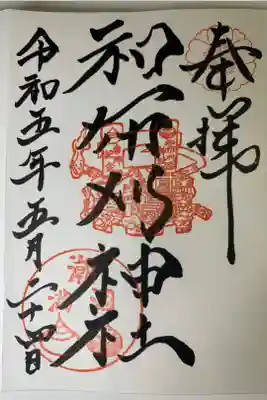 奉拝
和布刈神社
令和五年五月二十四日